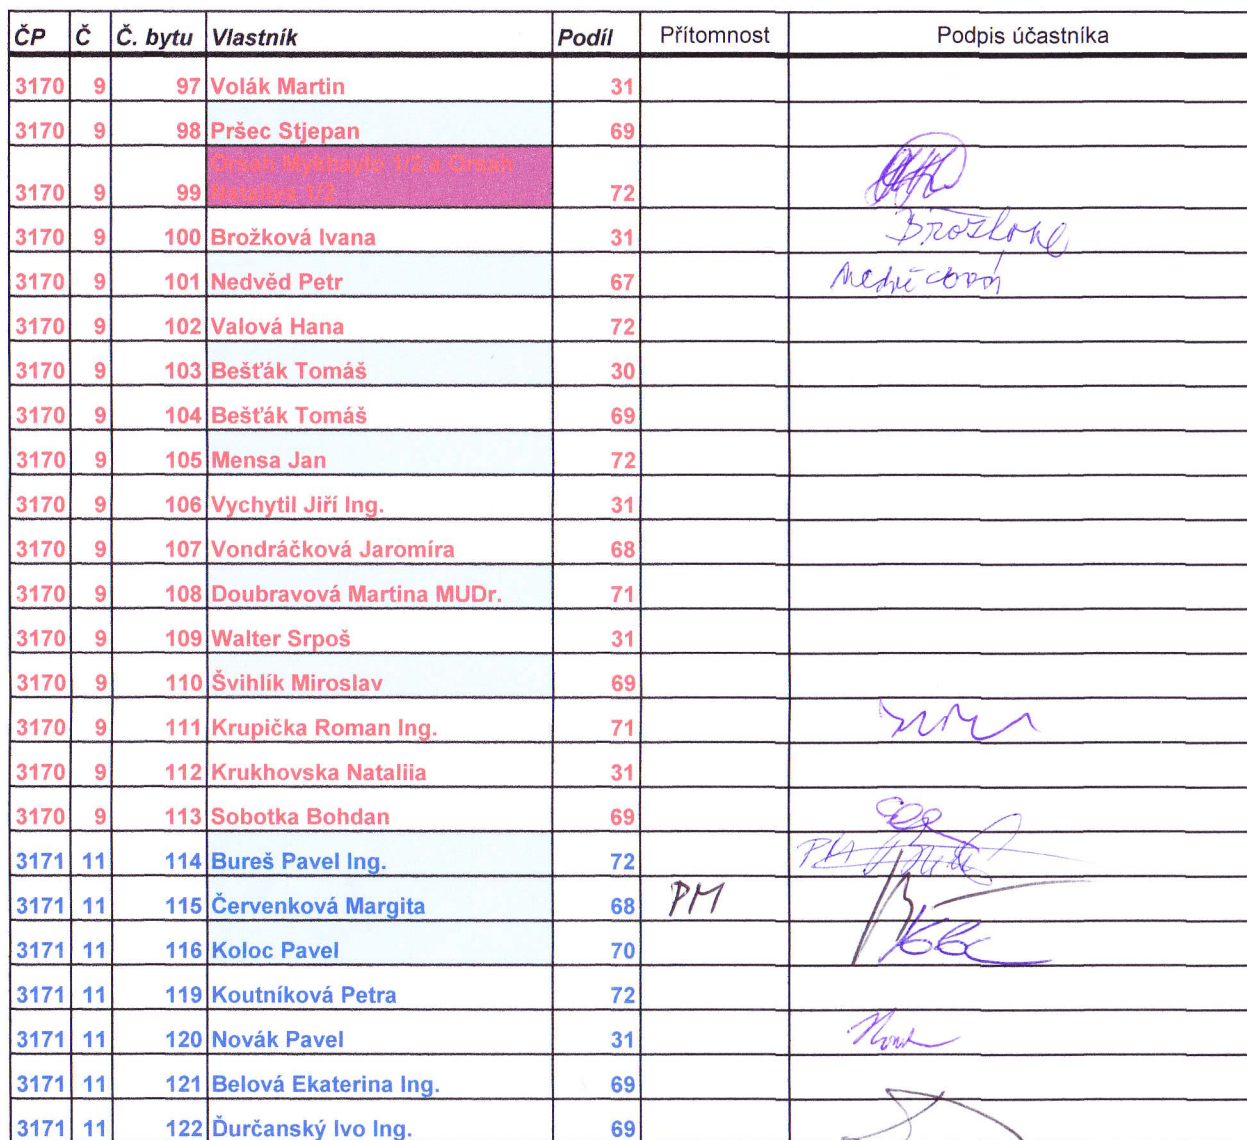 ČP Č Č. bytu Vlastník Podíl Přítomnost Podpis účastníka
3170 9 97 Volák Martin 31
3170 9 98 Pršec Stjepan 69
Orsah Mykhaylo 1/2 a Orsah
3170 9 99 Nataliya 1/2 72
3170 9 100 Brožková Ivana 31 Brožková
3170 9 101 Nedvěd Petr 67
3170 9 102 Valová Hana 72
3170 9 103 Bešťák Tomáš 30
3170 9 104 Bešťák Tomáš 69
3170 9 105 Mensa Jan 72
3170 9 106 Vychytil Jiří Ing. 31
3170 9 107 Vondráčková Jaromíra 68
3170 9 108 Doubravová Martina MUDr. 71
3170 9 109 Walter Srpoš 31
3170 9 110 Švihlík Miroslav 69
3170 9 111 Krupička Roman Ing. 71
3170 9 112 Krukhovska Nataliia 31
3170 9 113 Sobotka Bohdan 69
3171 11 114 Bureš Pavel Ing. 72 PM
3171 11 115 Červenková Margita 68 PM
3171 11 116 Koloc Pavel 70
3171 11 119 Koutníková Petra 72
3171 11 120 Novák Pavel 31
3171 11 121 Belová Ekaterina Ing. 69
3171 11 122 Ďurčanský Ivo Ing. 69